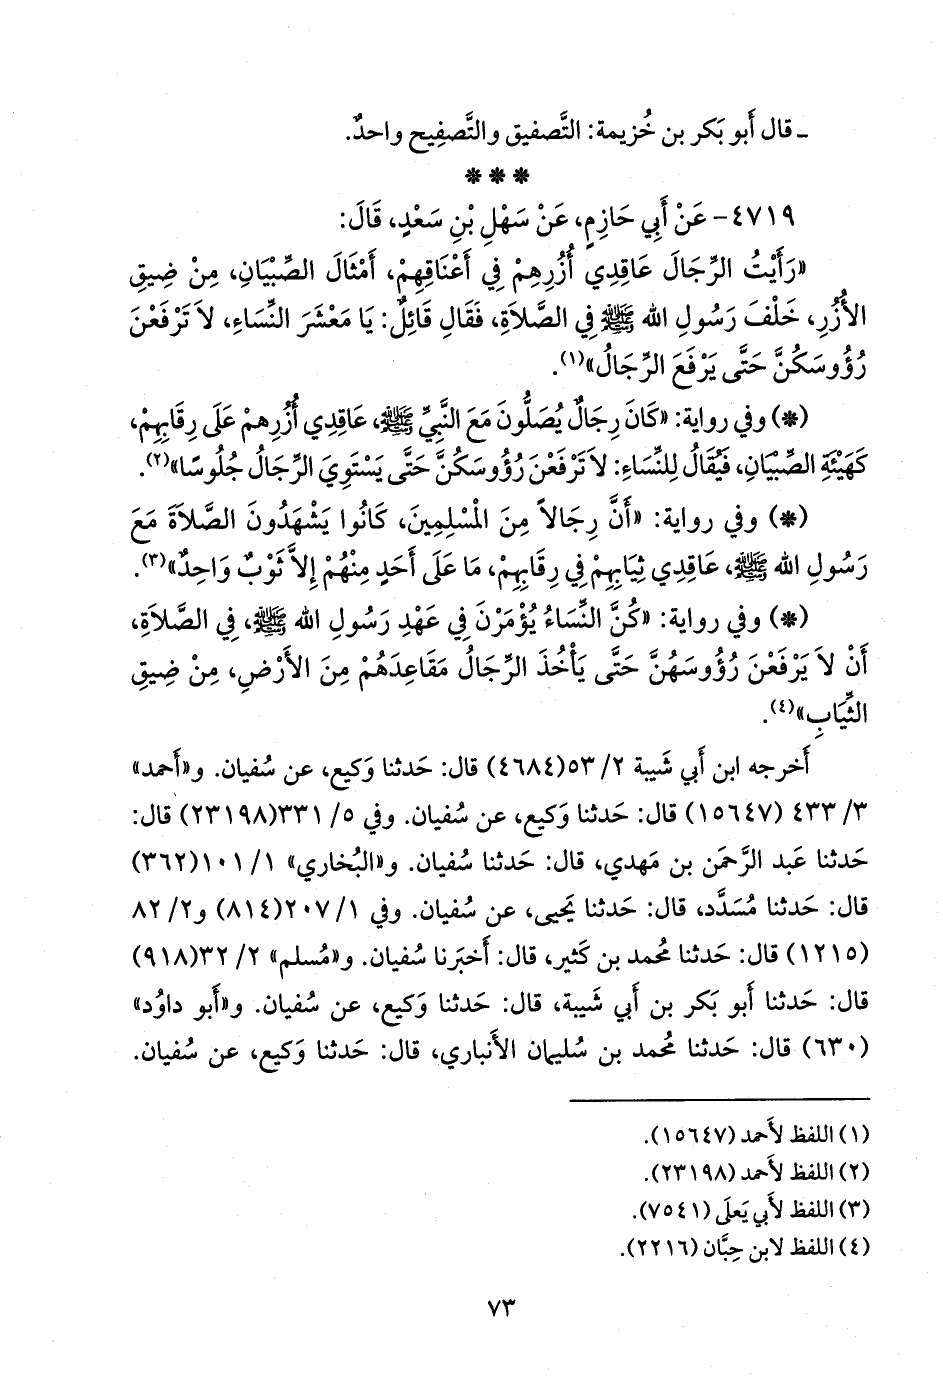 ـ قال أَبو بَكر بن خُزيمة: التَّصفيق والتَّصفِيح واحدٌ.
***
٤٧١٩- عَنْ أَبِي حَازِمٍ، عَنْ سَهْلِ بْنِ سَعْدٍ، قَالَ:
«رَأَيْتُ الرِّجَالَ عَاقِدِي أُزُرِهِمْ فِي أَعْنَاقِهِمْ، أَمْثَالَ الصِّبْيَانِ، مِنْ ضِيقِ
الأُزُرِ، خَلْفَ رَسُولِ الله ﷺ فِي الصَّلاَةِ، فَقَالِ قَائِلٌ: يَا مَعْشَرَ النِّسَاءِ، لاَ تَرْفَعْنَ
رُؤُوسَكُنَّ حَتَّى يَرْفَعَ الرِّجَالُ»(١).
(*) وفي رواية: «كَانَ رِجَالٌ يُصَلُّونَ مَعَ النَّبِيِّ ﷺ، عَاقِدِي أُزُرِهِمْ عَلَى رِقَابِهِمْ،
كَهَيْئَةِ الصِّبْيَانِ، فَيُقَالُ لِلنِّسَاءِ: لاَ تَرْفَعْنَ رُؤُوسَكُنَّ حَتَّى يَسْتَوِيَ الرِّجَالُ جُلُوسًا»(٢).
(*) وفي رواية: «أَنَّ رِجَالاً مِنَ الْمُسْلِمِينَ، كَانُوا يَشْهَدُونَ الصَّلاَةَ مَعَ
رَسُولِ الله ﷺ، عَاقِدِي ثِيَابِهِمْ فِي رِقَابِهِمْ، مَا عَلَى أَحَدٍ مِنْهُمْ إِلاَّ ثَوْبٌ وَاحِدٌ»(٣).
(*) وفي رواية: «كُنَّ النِّسَاءُ يُؤْمَرْنَ فِي عَهْدِ رَسُولِ الله ﷺ، فِي الصَّلاَةِ،
أَنْ لاَ يَرْفَعْنَ رُؤُوسَهُنَّ حَتَّى يَأْخُذَ الرِّجَالُ مَقَاعِدَهُمْ مِنَ الأَرْضِ، مِنْ ضِيقِ
الثِّيَابِ»(٤).
أَخرجه ابن أَبي شَيبة ٢/ ٥٣(٤٦٨٤) قال: حَدثنا وَكيع، عن سُفيان. و«أَحمد»
٣/ ٤٣٣ (١٥٦٤٧) قال: حَدثنا وَكيع، عن سُفيان. وفي ٥/ ٣٣١(٢٣١٩٨) قال:
حَدثنا عَبد الرَّحمَن بن مَهدي، قال: حَدثنا سُفيان. و«البُخاري» ١/ ١٠١(٣٦٢)
قال: حَدثنا مُسَدَّد، قال: حَدثنا يَحيى، عن سُفيان. وفي ١/ ٢٠٧(٨١٤) و٢/ ٨٢
(١٢١٥) قال: حَدثنا مُحمد بن كَثير، قال: أَخبَرنا سُفيان. و«مُسلم» ٢/ ٣٢(٩١٨)
قال: حَدثنا أَبو بَكر بن أَبي شَيبة، قال: حَدثنا وَكيع، عن سُفيان. و«أَبو داوُد»
(٦٣٠) قال: حَدثنا مُحمد بن سُليمان الأَنباري، قال: حَدثنا وَكيع، عن سُفيان.
(١) اللفظ لأَحمد (١٥٦٤٧).
(٢) اللفظ لأَحمد (٢٣١٩٨).
(٣) اللفظ لأَبي يَعلَى (٧٥٤١).
(٤) اللفظ لابن حِبَّان (٢٢١٦).
٧٣